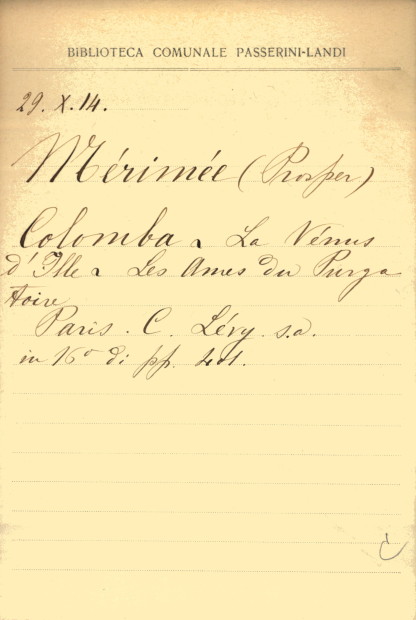 BIBLIOTECA COMUNALE PASSERINI-LANDI
29. X. 14.
Mérimée (Prosper)
Colomba - La Vénus
d'Ille - Les Ames du Purga
toire
Paris. C. Lévy s.a.
in 16° di pp. 401.